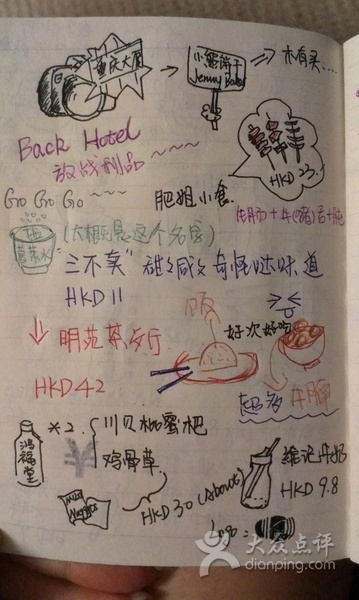 重庆大厦
小熊饼干
Jenny Bakery
⇒ 木有买...
Back Hotel
放战利品~~~~
Go Go Go ~~~
肥姐小食
HKD 23.
(大概是这个名字)
"三不卖" 甜甜咸咸 奇怪哒味道
HKD 11
明苑茶餐厅
好次好吃
HKD 42
超多牛腩
鸿福堂
*2
川贝枇杷蜜
鸡骨草
HKD 30 (About)
维记牛奶
HKD 9.8
Logo =
大众点评
dianping.com